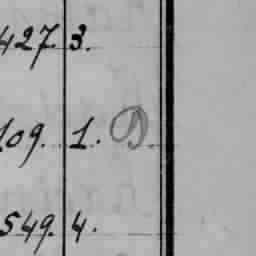 427. 3.
109. 1. D.
549. 4.